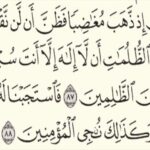 إِذ ذَّهَبَ مُغَٰضِبًا فَظَنَّ أَن لَّن نَّقْ
ٱلظُّلُمَٰتِ أَن لَّآ إِلَٰهَ إِلَّآ أَنتَ سُبْ
نَ ٱلظَّٰلِمِينَ ٨٧ فَٱسْتَجَبْنَا لَهُ
وَكَذَٰلِكَ نُۨجِى ٱلْمُؤْمِنِينَ ٨٨